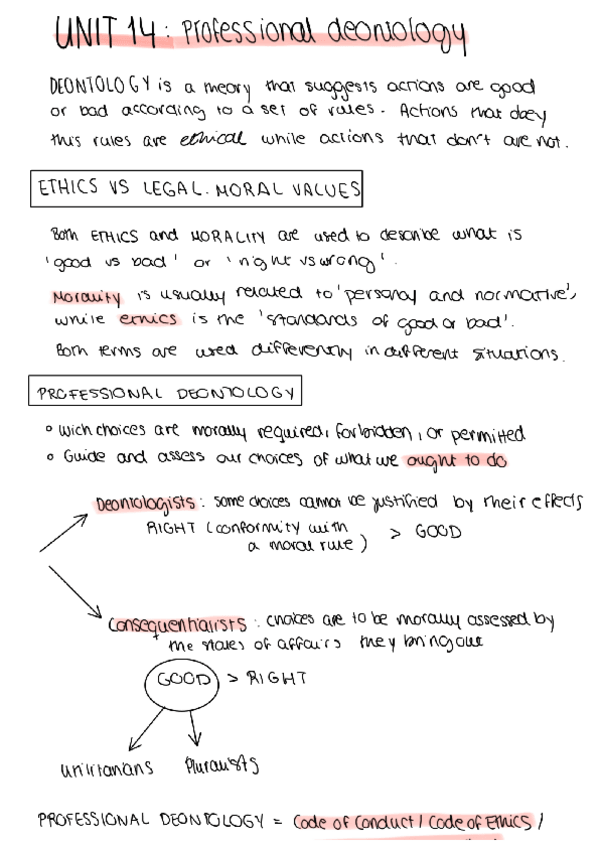 UNIT 14: Professional deontology
DEONTOLOGY is a theory that suggests actions are good
or bad according to a set of rules. Actions that obey
this rules are ethical while actions that don't are not.
ETHICS VS LEGAL. MORAL VALUES
Both ETHICS and MORALITY are used to describe what is
'good vs bad' or 'right vs wrong'.
Morality is usually related to 'personal and normative',
while ethics is the 'standards of good or bad'.
Both terms are used differently in different situations.
PROFESSIONAL DEONTOLOGY
° wich choices are morally required, forbidden, or permitted
° Guide and assess our choices of what we ought to do
Deontologists: some choices cannot be justified by their effects
RIGHT (conformity with > GOOD
a moral rule)
Consequentialists: choices are to be morally assessed by
the states of affairs they bring out
GOOD > RIGHT
Utilitarians Pluralists
PROFESSIONAL DEONTOLOGY = Code of Conduct / Code of Ethics /